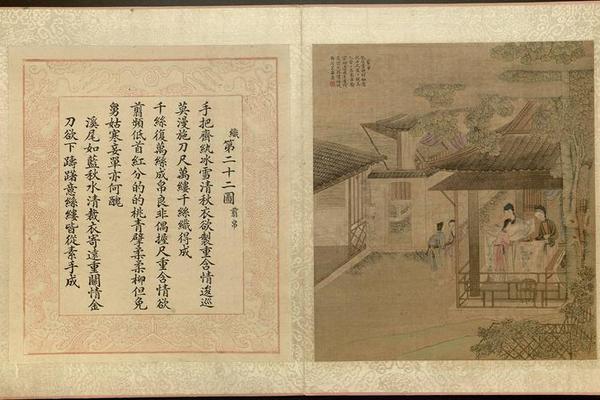 織第二十二圖 剪帛
手把齊紈冰雪清秋衣欲製重含情逡巡
莫漫施刀尺萬縷千絲織得成
千絲復萬絲成帛良非偶握尺重含情欲
剪頻低首紅分的的桃青擘柔柔柳但免
舅姑寒妾單亦何醜
尾如藍秋水清裁衣寄遠重關情金
刀欲下躊躇意絲縷皆從素手成